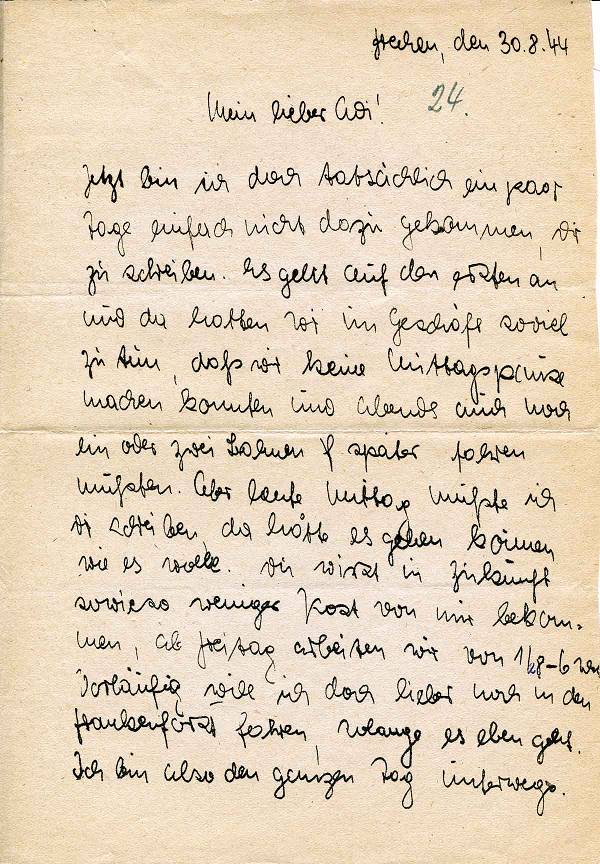 Frechen, den 30.8.44
24.
Mein lieber Adi!
Jetzt bin ich doch tatsächlich ein paar
Tage einfach nicht dazu gekommen, Dir
zu schreiben. Es geht auf den ersten an
und da hatten wir im Geschäft soviel
zu tun, daß wir keine Mittagspause
machen konnten und abends auch noch
ein oder zwei Bahnen später fahren
mußten. Aber heute Mittag mußte ich
Dir schreiben, da hätte es gehen können
wie es wolle. Du wirst in Zukunft
sowieso weniger Post von mir bekom-
men, ab Freitag arbeiten wir von 1/28-6
Vorläufig will ich doch lieber noch in den
Frankenforst fahren, solange es eben geht.
Ich bin also den ganzen Tag unterwegs.